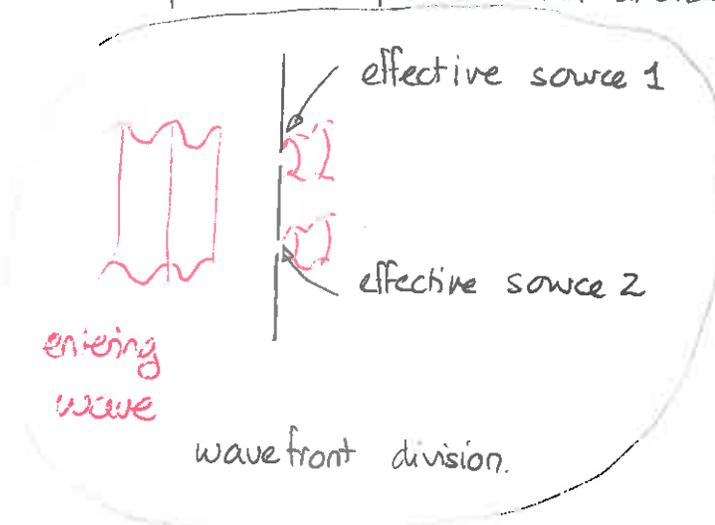 effective source 1
effective source 2
entering
wave
wavefront division.